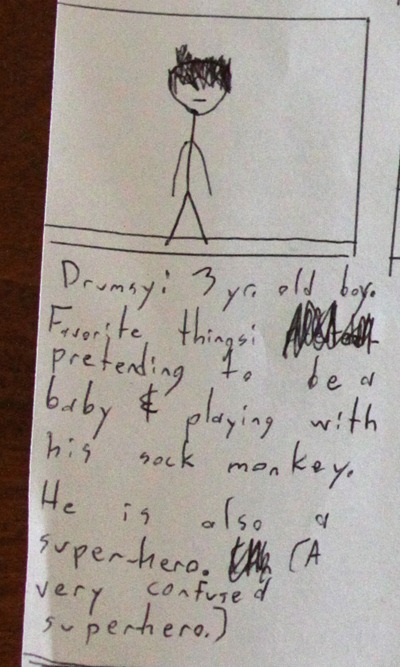 Drumsy: 3 yr. old boy.
Favorite things:
pretending to be a
baby & playing with
his sock monkey.
He is also a
superhero. (A
very confused
superhero.)